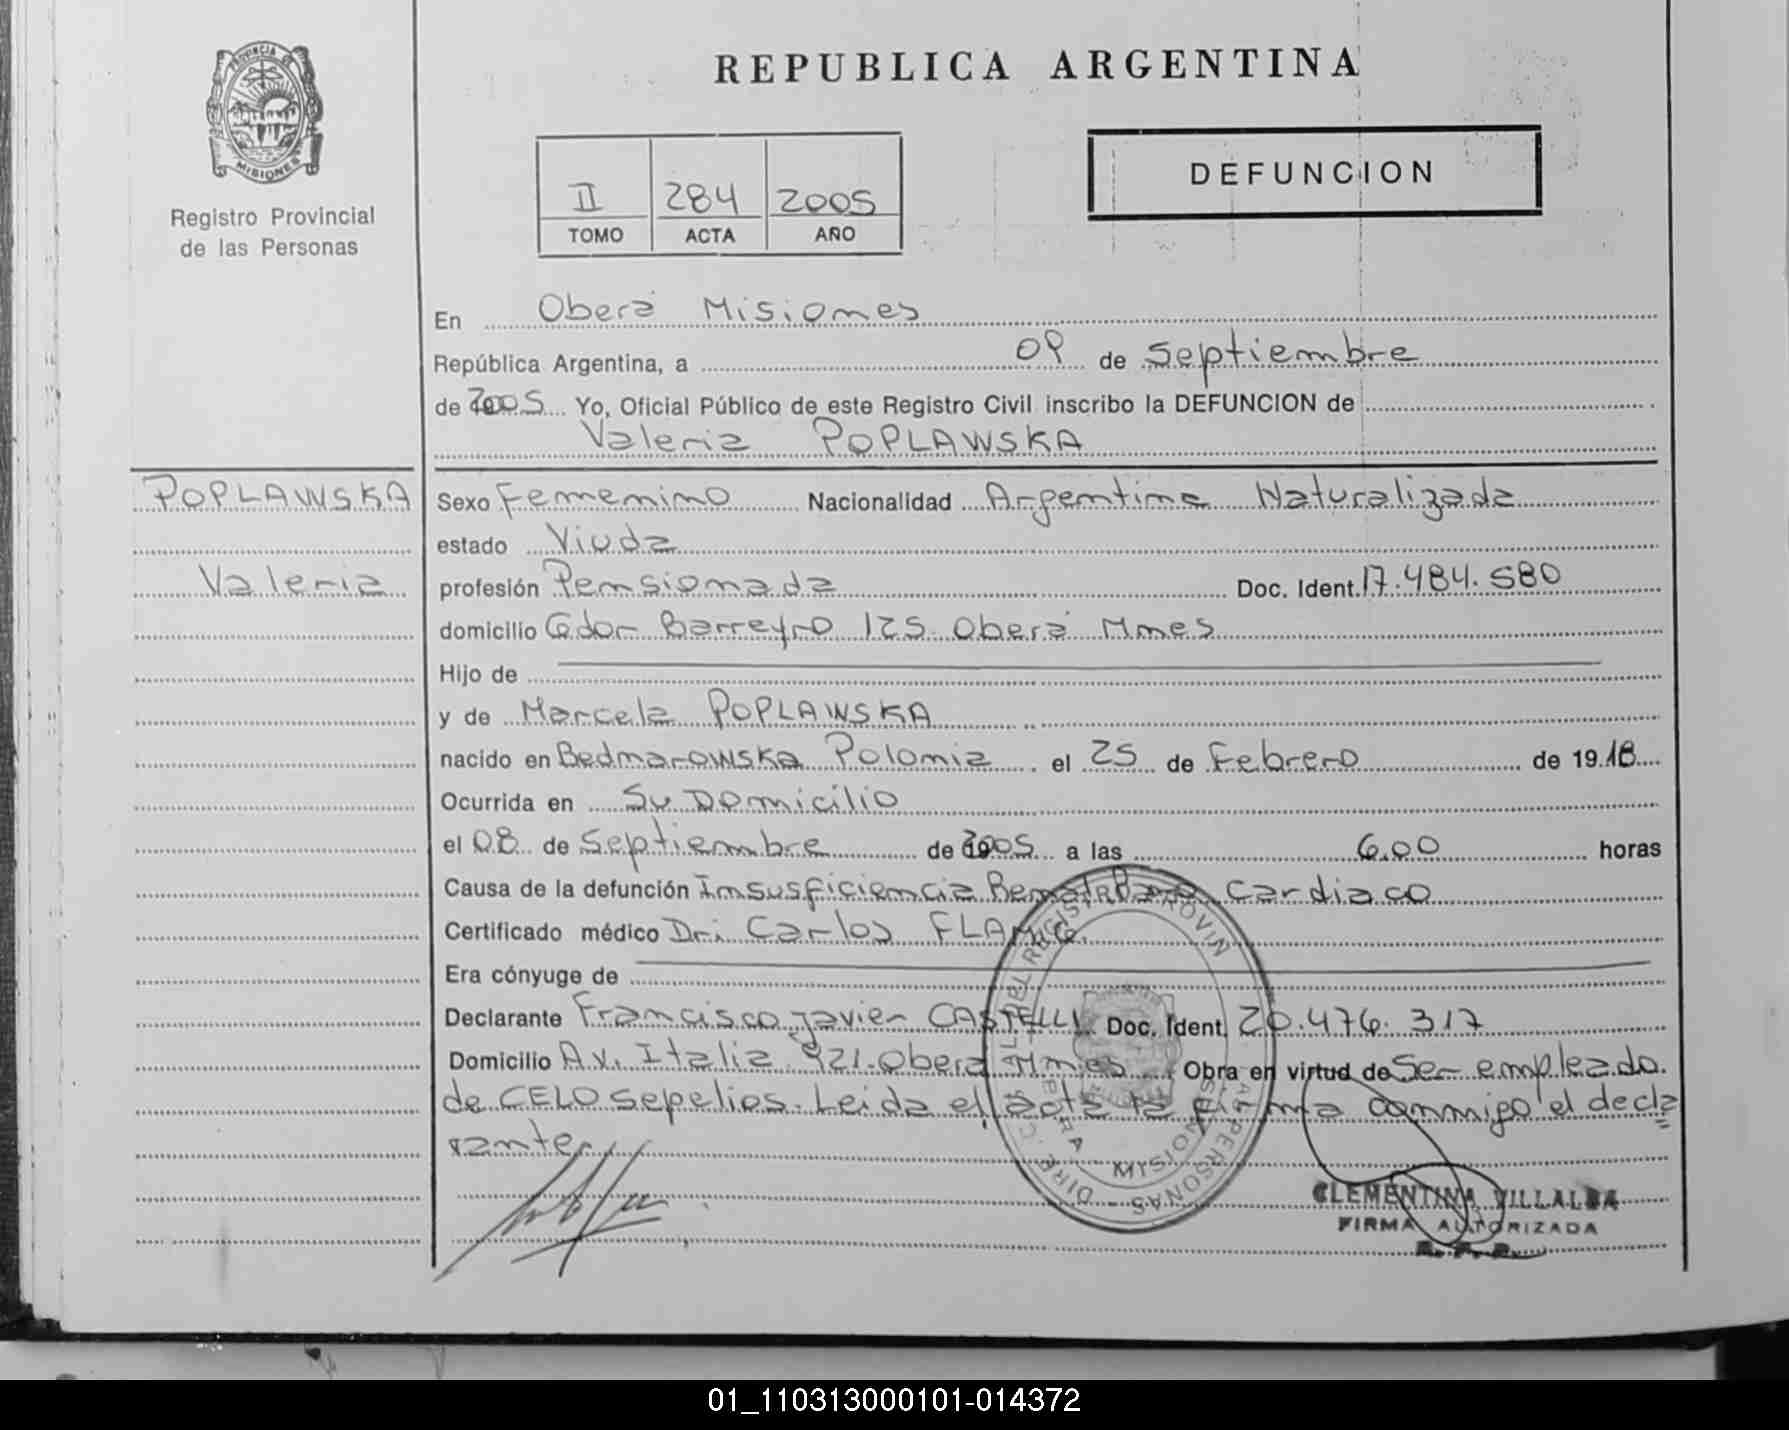 PROVINCIA DE
MISIONES
Registro Provincial
de las Personas
REPUBLICA ARGENTINA
II 284 2005
TOMO ACTA AÑO
DEFUNCION
En Oberá Misiones
República Argentina, a 09 de Septiembre
de 2005 Yo, Oficial Público de este Registro Civil inscribo la DEFUNCION de
Valeria POPLAWSKA
POPLAWSKA
Valeria
Sexo Femenino Nacionalidad Argentina Naturalizada
estado Viuda
profesión Pensionada Doc. Ident. 17.484.580
domicilio Gdor Barreyro 125 Oberá Mnes
Hijo de
y de Marcela POPLAWSKA
nacido en Bednarowska Polonia el 25 de Febrero de 1918
Ocurrida en Su Domicilio
el 08 de Septiembre de 2005 a las 6.00 horas
Causa de la defunción Insusficiencia Cardiaco
Certificado médico Dr. Carlos
Era cónyuge de
Declarante Francisco Javier CASTELLI Doc. Ident. 20.476.317
Domicilio Av. Italia 921 Oberá Mnes Obra en virtud de Ser empleado
de CELO sepelios. Leida el acta la firma conmigo el decla
rante
CLEMENTINA VILLALBA
FIRMA AUTORIZADA
R. P. P.
01_110313000101-014372